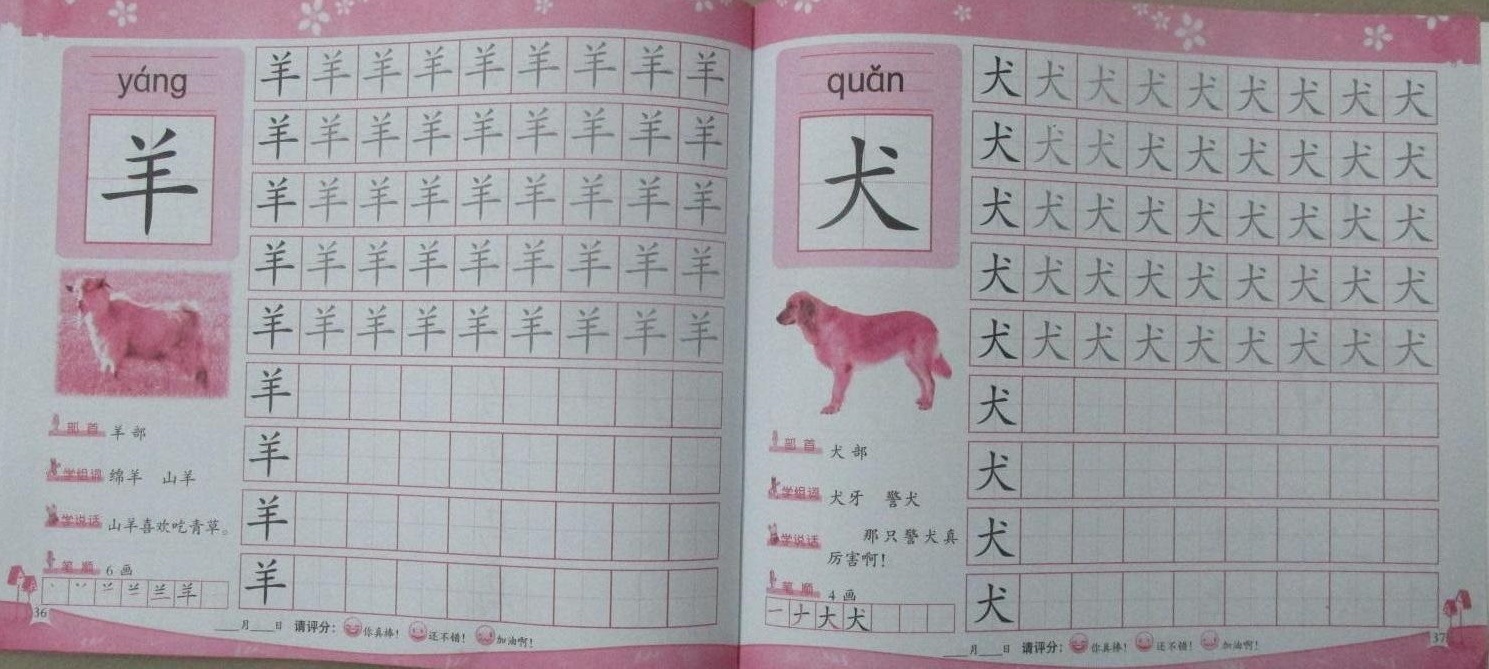 yáng
羊
羊 羊 羊 羊 羊 羊 羊 羊 羊
羊 羊 羊 羊 羊 羊 羊 羊 羊
羊 羊 羊 羊 羊 羊 羊 羊 羊
羊 羊 羊 羊 羊 羊 羊 羊 羊
羊 羊 羊 羊 羊 羊 羊 羊 羊
羊
羊
羊
羊
部首 羊部
学组词 绵羊 山羊
学说话 山羊喜欢吃青草。
笔顺 6画
羊
36
月 日 请评分: 你真棒! 还不错! 加油啊!
quǎn
犬
犬 犬 犬 犬 犬 犬 犬 犬 犬
犬 犬 犬 犬 犬 犬 犬 犬 犬
犬 犬 犬 犬 犬 犬 犬 犬 犬
犬 犬 犬 犬 犬 犬 犬 犬 犬
犬 犬 犬 犬 犬 犬 犬 犬 犬
犬
犬
犬
犬
部首 犬部
学组词 犬牙 警犬
学说话 那只警犬真
厉害啊!
笔顺 4画
一 ナ 大 犬
月 日 请评分: 你真棒! 还不错! 加油啊!
37